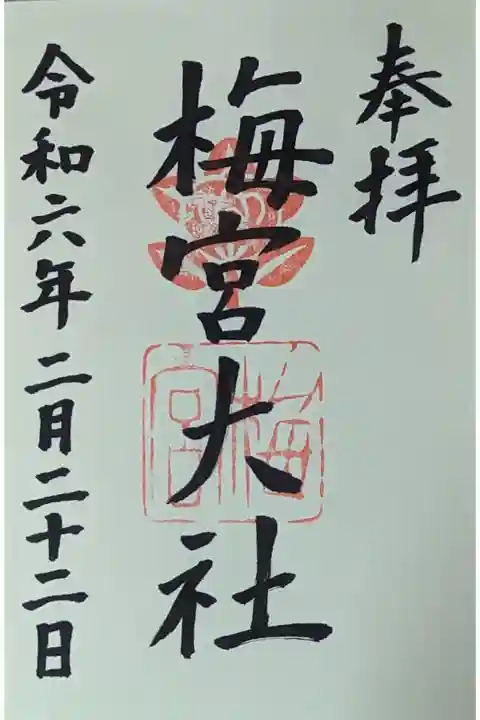 奉拝
梅宮大社
令和六年二月二十二日
梅宮